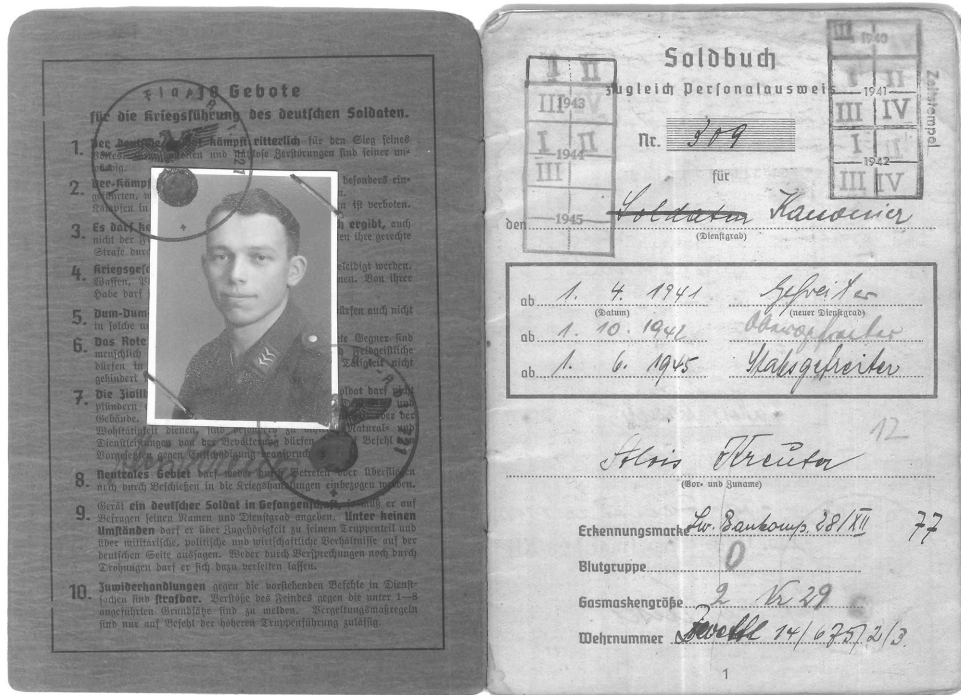 10 Gebote
für die Kriegsführung des deutschen Soldaten.
1. Der deutsche kämpft ritterlich für den Sieg seines
und nutzlose Zerstörungen sind seiner un-
2. besonders ein-
Kämpfen in ist verboten.
3. Es darf ergibt, auch
nicht der ihre gerechte
Strafe
4. beleidigt werden.
Waffen, Von ihrer
Habe darf
5. Dum-Dum- dürfen auch nicht
in solche
6. Das Rote Gegner sind
menschlich Feldgeistliche
dürfen in Tätigkeit nicht
gehindert
7. Die Zivil darf nicht
plündern und
Gebäude, der
Wohltätigkeit dienen, sind Natural- und
Dienstleistungen von der Bevölkerung dürfen Befehl
Vorgesetzten gegen Entschädigung beansprucht
8. Neutrales Gebiet darf weder durch Betreten oder Überfliegen
noch durch Beschießen in die Kriegshandlungen einbezogen werden.
9. Gerät ein deutscher Soldat in Gefangenschaft, so muß er auf
Befragen seinen Namen und Dienstgrad angeben. Unter keinen
Umständen darf er über Zugehörigkeit zu seinem Truppenteil und
über militärische, politische und wirtschaftliche Verhältnisse auf der
deutschen Seite aussagen. Weder durch Versprechungen noch durch
Drohungen darf er sich dazu verleiten lassen.
10. Zuwiderhandlungen gegen die vorstehenden Befehle in Dienst-
sachen sind strafbar. Verstöße des Feindes gegen die unter 1—8
angeführten Grundsätze sind zu melden. Vergeltungsmaßregeln
sind nur auf Befehl der höheren Truppenführung zulässig.
Soldbuch
zugleich Personalausweis
Nr. 309
für
den Soldaten Kanonier
(Dienstgrad)
I II
III 1943
I II
1944
III
1945
III 1940
I II
1941
III IV
I II
1942
III IV
Zeitstempel
ab 1. 4. 1941 Gefreiter
(Datum) (neuer Dienstgrad)
ab 1. 10. 1942 Obergefreiter
ab 1. 6. 1945 Stabsgefreiter
12
Alois
(Vor- und Zuname)
Erkennungsmarke 28/XII 77
Blutgruppe O
Gasmaskengröße 2 Nr 29
Wehrnummer Zwettl 14/675/2/3.
1